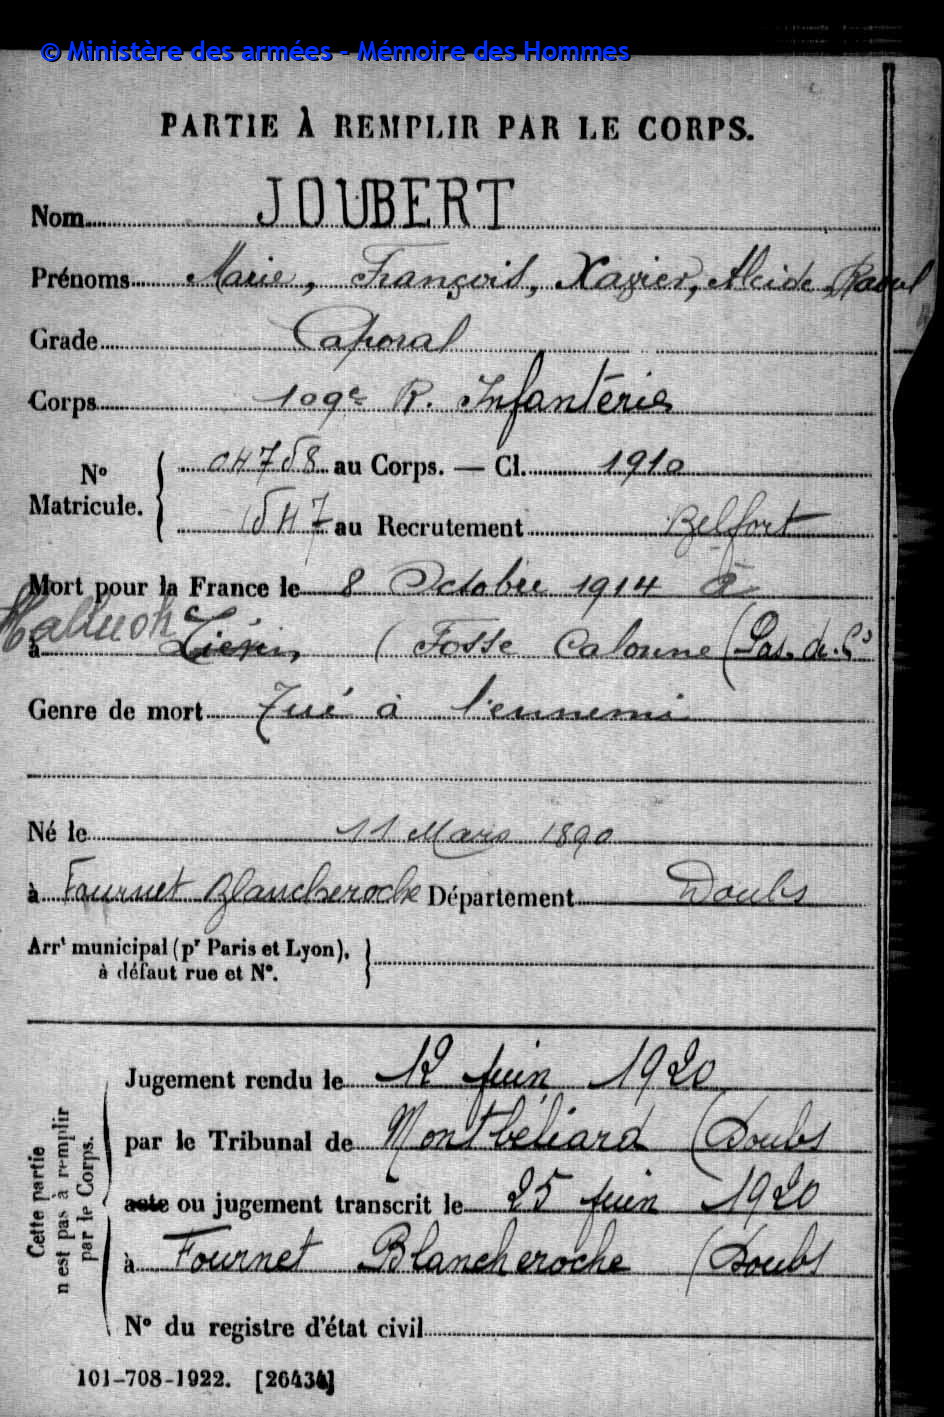 © Ministère des armées - Mémoire des Hommes
PARTIE À REMPLIR PAR LE CORPS.
Nom JOUBERT
Prénoms Marie, François, Xavier, Alcide, Raoul
Grade Caporal
Corps 109e R. Infanterie
N° Matricule. 04758 au Corps. — Cl. 1910
1547 au Recrutement Belfort
Mort pour la France le 8 Octobre 1914 à
à (Fosse Calonne (Pas. de. Cs
Genre de mort Tué à l'ennemi
Né le 11 Mars 1890
à Fournet Blancheroche Département Doubs
Arrt municipal (pr Paris et Lyon),
à défaut rue et N°.
Cette partie
n'est pas à remplir
par le Corps.
Jugement rendu le 12 juin 1920
par le Tribunal de Montbéliard (Doubs
acte ou jugement transcrit le 25 juin 1920
à Fournet Blancheroche (Doubs
N° du registre d'état civil
101-708-1922. [26434]